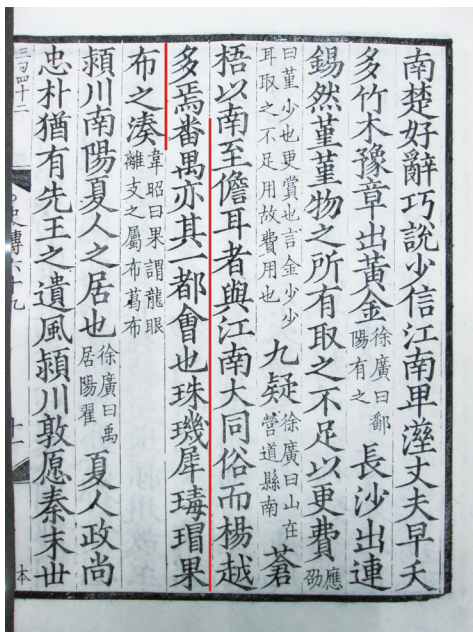 南楚好辭巧說少信江南卑溼丈夫早夭
多竹木豫章出黃金徐廣曰鄱陽有之長沙出連
錫然堇堇物之所有取之不足以更費應劭
曰堇少也更賞也言金少少耳取之不足用故費用也九疑徐廣曰山在營道縣南蒼
梧以南至儋耳者與江南大同俗而楊越
多焉番禺亦其一都會也珠璣犀瑇瑁果
布之湊韋昭曰果謂龍眼離支之屬布葛布
潁川南陽夏人之居也徐廣曰禹居陽翟夏人政尚
忠朴猶有先王之遺風潁川敦愿秦末世
史傳六十九